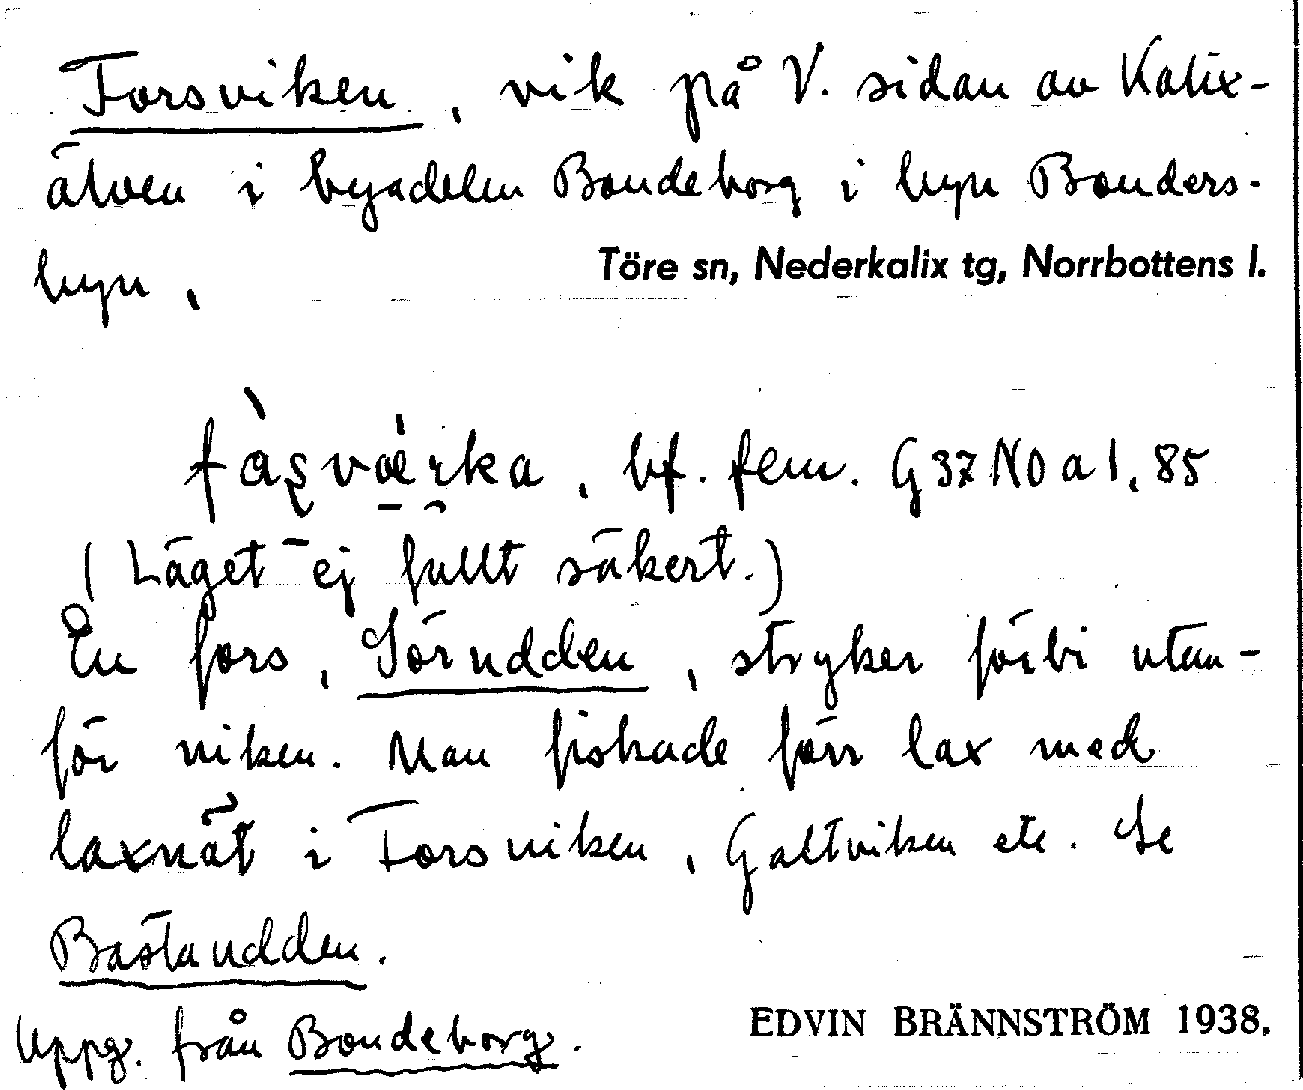 Forsviken, vik på V. sidan av Kalix-
älven i byadelen Bondeborg i byn Bonders-
byn,
Töre sn, Nederkalix tg, Norrbottens l.
fàşvæ̀rka, bf. fem. G 37 N0 a 1, 85
(Läget ej fullt säkert.)
En fors, Sörudden, stryker förbi utan-
för viken. Man fiskade förr lax med
laxnät i Forsviken, Galtviken etc. Se
Bastaudden.
Uppg. från Bondeborg.
EDVIN BRÄNNSTRÖM 1938.